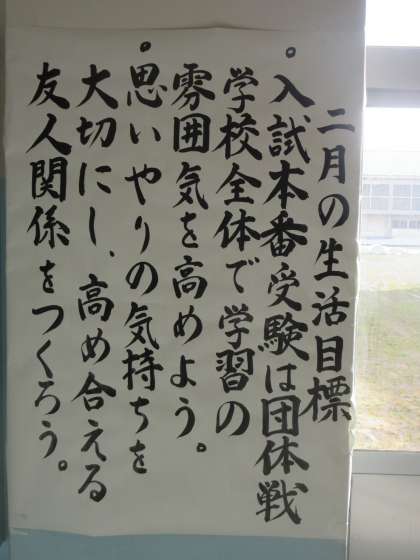 二月の生活目標
。入試本番受験は団体戦
学校全体で学習の
雰囲気を高めよう。
。思いやりの気持ちを
大切にし、高め合える
友人関係をつくろう。